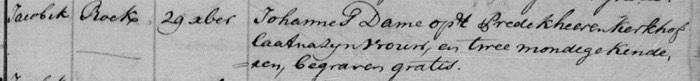 Jacobek Roek 29 xber Johannes Dame op't Predekheeren Kerkhof
laat na syn vrouw, en twee mondege kinde,
ren, begraven gratis.